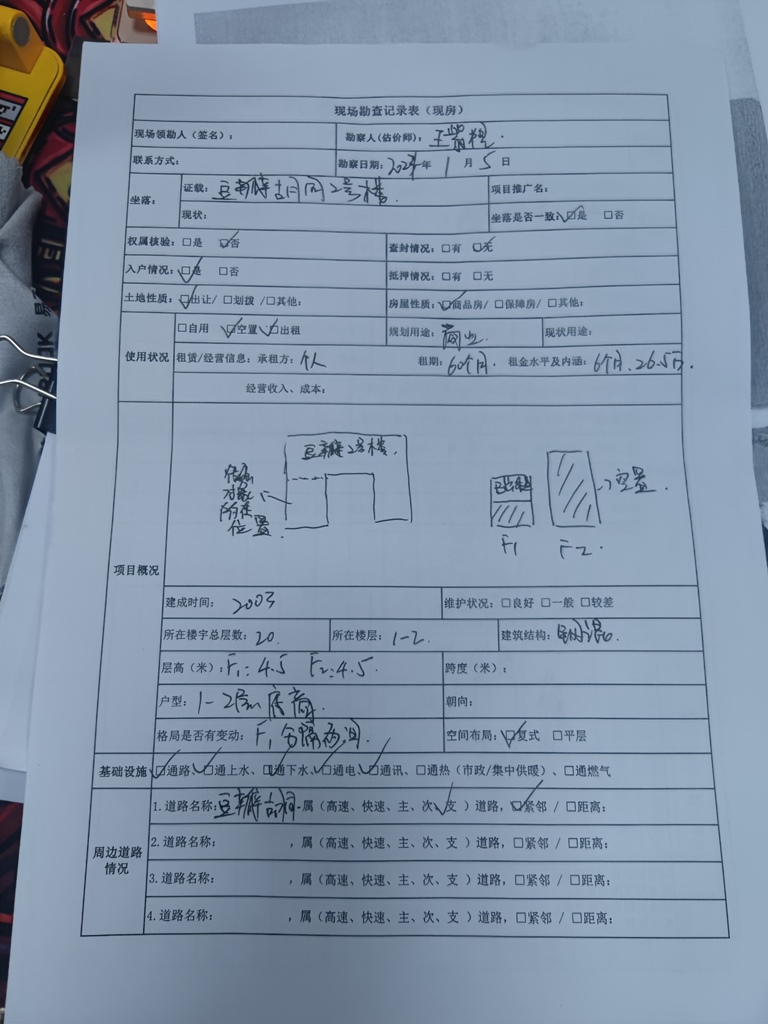 现场勘查记录表（现房）
现场领勘人（签名）： 勘察人(估价师)： 王
联系方式： 勘察日期：2024年 1 月 5 日
坐落： 证载： 豆瓣胡同2号楼 项目推广名：
现状： 坐落是否一致：☑是 □否
权属核验：□是 ☑否 查封情况：□有 ☑无
入户情况：☑是 □否 抵押情况：□有 □无
土地性质：☑出让/ □划拨 /□其他： 房屋性质：☑商品房/ □保障房/ □其他：
使用状况 □自用 ☑空置 ☑出租 规划用途： 商业 现状用途：
租赁/经营信息：承租方：个人 租期：60个月. 租金水平及内涵：6个月、26.5万.
经营收入、成本：
项目概况
豆瓣2号楼.
估价对象所在位置
空置.
F1 F2.
建成时间： 2003 维护状况：□良好 □一般 □较差
所在楼宇总层数：20. 所在楼层：1-2. 建筑结构：钢混.
层高（米）：F1：4.5 F2：4.5. 跨度（米）：
户型：1-2层底商. 朝向：
格局是否有变动：F1分隔两间. 空间布局：☑复式 □平层
基础设施 ☑通路、☑通上水、☑通下水、☑通电、☑通讯、□通热（市政/集中供暖）、□通燃气
周边道路情况
1.道路名称：豆瓣胡同，属（高速、快速、主、次、支✓）道路，☑紧邻 / □距离：
2.道路名称： ，属（高速、快速、主、次、支 ）道路，□紧邻 / □距离：
3.道路名称： ，属（高速、快速、主、次、支 ）道路，□紧邻 / □距离：
4.道路名称： ，属（高速、快速、主、次、支 ）道路，□紧邻 / □距离：